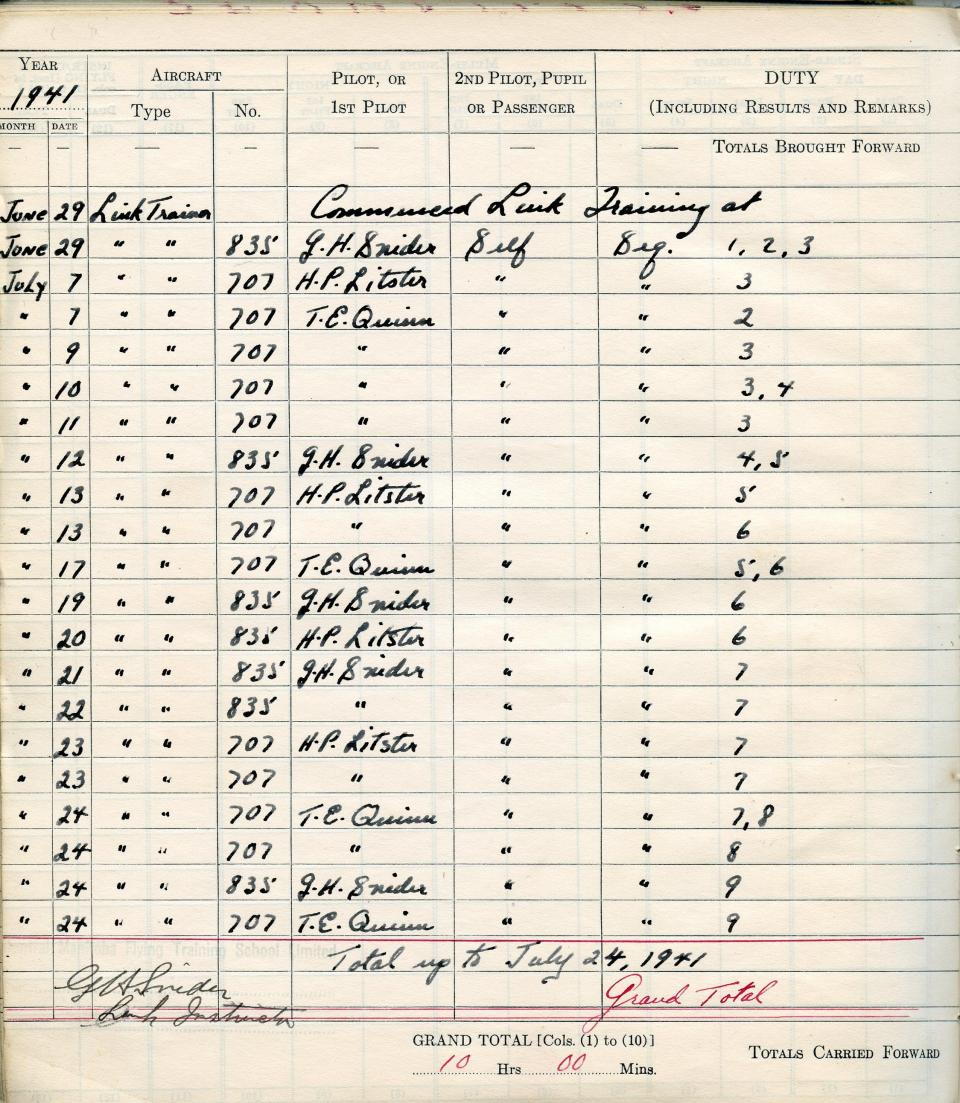 YEAR AIRCRAFT PILOT, OR 2ND PILOT, PUPIL DUTY
1941 Type No. 1ST PILOT OR PASSENGER (INCLUDING RESULTS AND REMARKS)
MONTH DATE
— — — — — — — TOTALS BROUGHT FORWARD
June 29 Link Trainor Commenced Link Training at
June 29 " " 835 G.H. Snider Self Seq. 1, 2, 3
July 7 " " 707 H.P. Litster " " 3
" 7 " " 707 T.E. Quinn " " 2
" 9 " " 707 " " " 3
" 10 " " 707 " " " 3, 4
" 11 " " 707 " " " 3
" 12 " " 835 G.H. Snider " " 4, 5
" 13 " " 707 H.P. Litster " " 5
" 13 " " 707 " " " 6
" 17 " " 707 T.E. Quinn " " 5, 6
" 19 " " 835 G.H. Snider " " 6
" 20 " " 835 H.P. Litster " " 6
" 21 " " 835 G.H. Snider " " 7
" 22 " " 835 " " " 7
" 23 " " 707 H.P. Litster " " 7
" 23 " " 707 " " " 7
" 24 " " 707 T.E. Quinn " " 7, 8
" 24 " " 707 " " " 8
" 24 " " 835 G.H. Snider " " 9
" 24 " " 707 T.E. Quinn " " 9
Flying Training School Limited
Total up to July 24, 1941
GHSnider Grand Total
Link Instructor
GRAND TOTAL [Cols. (1) to (10)]
10 Hrs 00 Mins.
TOTALS CARRIED FORWARD